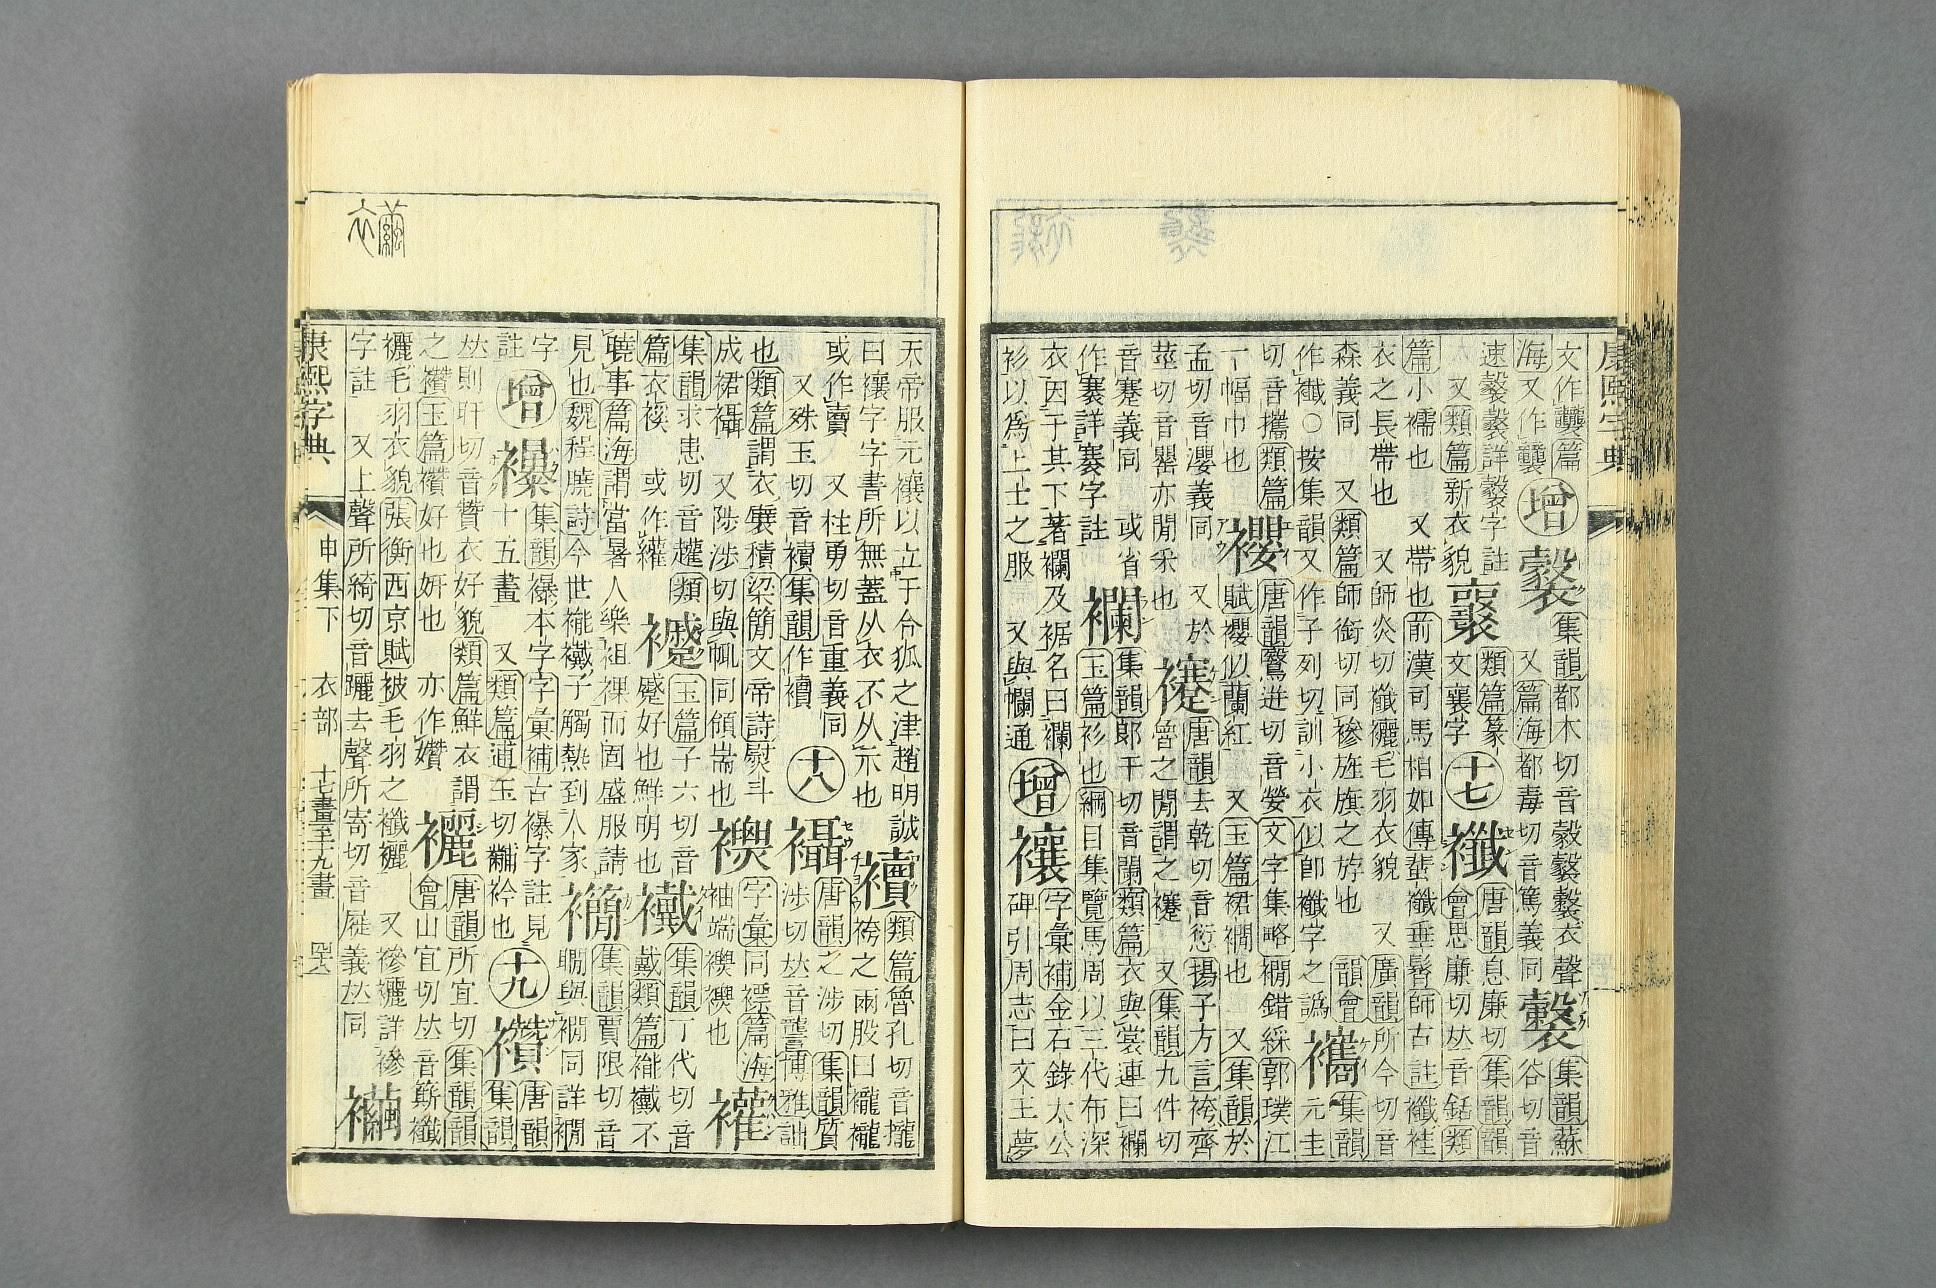 康熙字典
文作䙱篇
海又作襲
增
集韻都木切音豰豰衣聲
又篇海都毒切音篤義同
集韻蘇
谷切音
詳字註
又類篇新衣貌
類篇篆
文襄字
十七
襳
唐韻息廉切集韻韻
會思廉切𠀤音銛類
篇小襦也 又帶也前漢司馬相如傳蜚襳垂髾師古註襳袿
衣之長帶也 又師炎切襳襹毛羽衣貌 又廣韻所今切音
森義同 又類篇師銜切同縿旌旗之斿也 韻會
作襳○按集韻又作子列切訓小衣似卽襳字之譌
集韻
元圭
切音攜類篇
一幅巾也
唐韻鷖迸切音嫈文字集略錯綵郭璞江
賦以蘭紅 又玉篇裙襉也 又集韻於
孟切音瀴義同 又於
莖切音罌亦閒采也
唐韻去乾切音愆揚子方言袴齊
魯之閒謂之 又集韻九件切
音蹇義同 或省
作褰詳褰字註
襴
集韻郞干切音闌類篇衣與裳連曰襴
玉篇衫也綱目集覽馬周以三代布深
衣因于其下著襴及裾名曰襴
衫以爲上士之服 又與幱通
增
字彙補金石錄太公
碑引周志曰文王夢
衣
天帝服元禳以立于令狐之津趙明誠
曰禳字字書所無蓋从衣不从示也
襩
類篇曾孔切音攏
袴之兩股曰襱襱
或作 又柱勇切音重義同
又殊玉切音襩集韻作襩
十八
襵
唐韻之涉切集韻質
涉切𠀤音讋博雅詘
也類篇謂衣襞積梁簡文帝詩熨斗
成裙襵 又陟涉切與㡇同領耑也
字彙同褾篇海
袖端也
集韻求患切音類
篇衣 或作
玉篇子六切音
蹙好也鮮明也
襶
集韻丁代切音
戴類篇褦襶不
曉事篇海謂當暑人樂袒裸而固盛服請
見也魏程曉詩今世褦襶子觸熱到人家
集韻賈限切音
與襉同詳襉
字
註
增
集韻襮本字字彙補古襮字註見
十五畫 又類篇逋玉切黼衿也
十九
襸
唐韻
集韻
𠀤則旰切音贊衣好貌類篇鮮衣謂
之襸玉篇襸好也姸也 亦作㜺
襹
唐韻所宜切集韻韻
會山宜切𠀤音簁襳
襹毛羽衣貌張衡西京賦被毛羽之襳襹 又縿襹詳縿
字註 又上聲所綺切音躧去聲所寄切音屣義𠀤同
襺
康熙字典
申集下
衣部
十七畫至十九畫